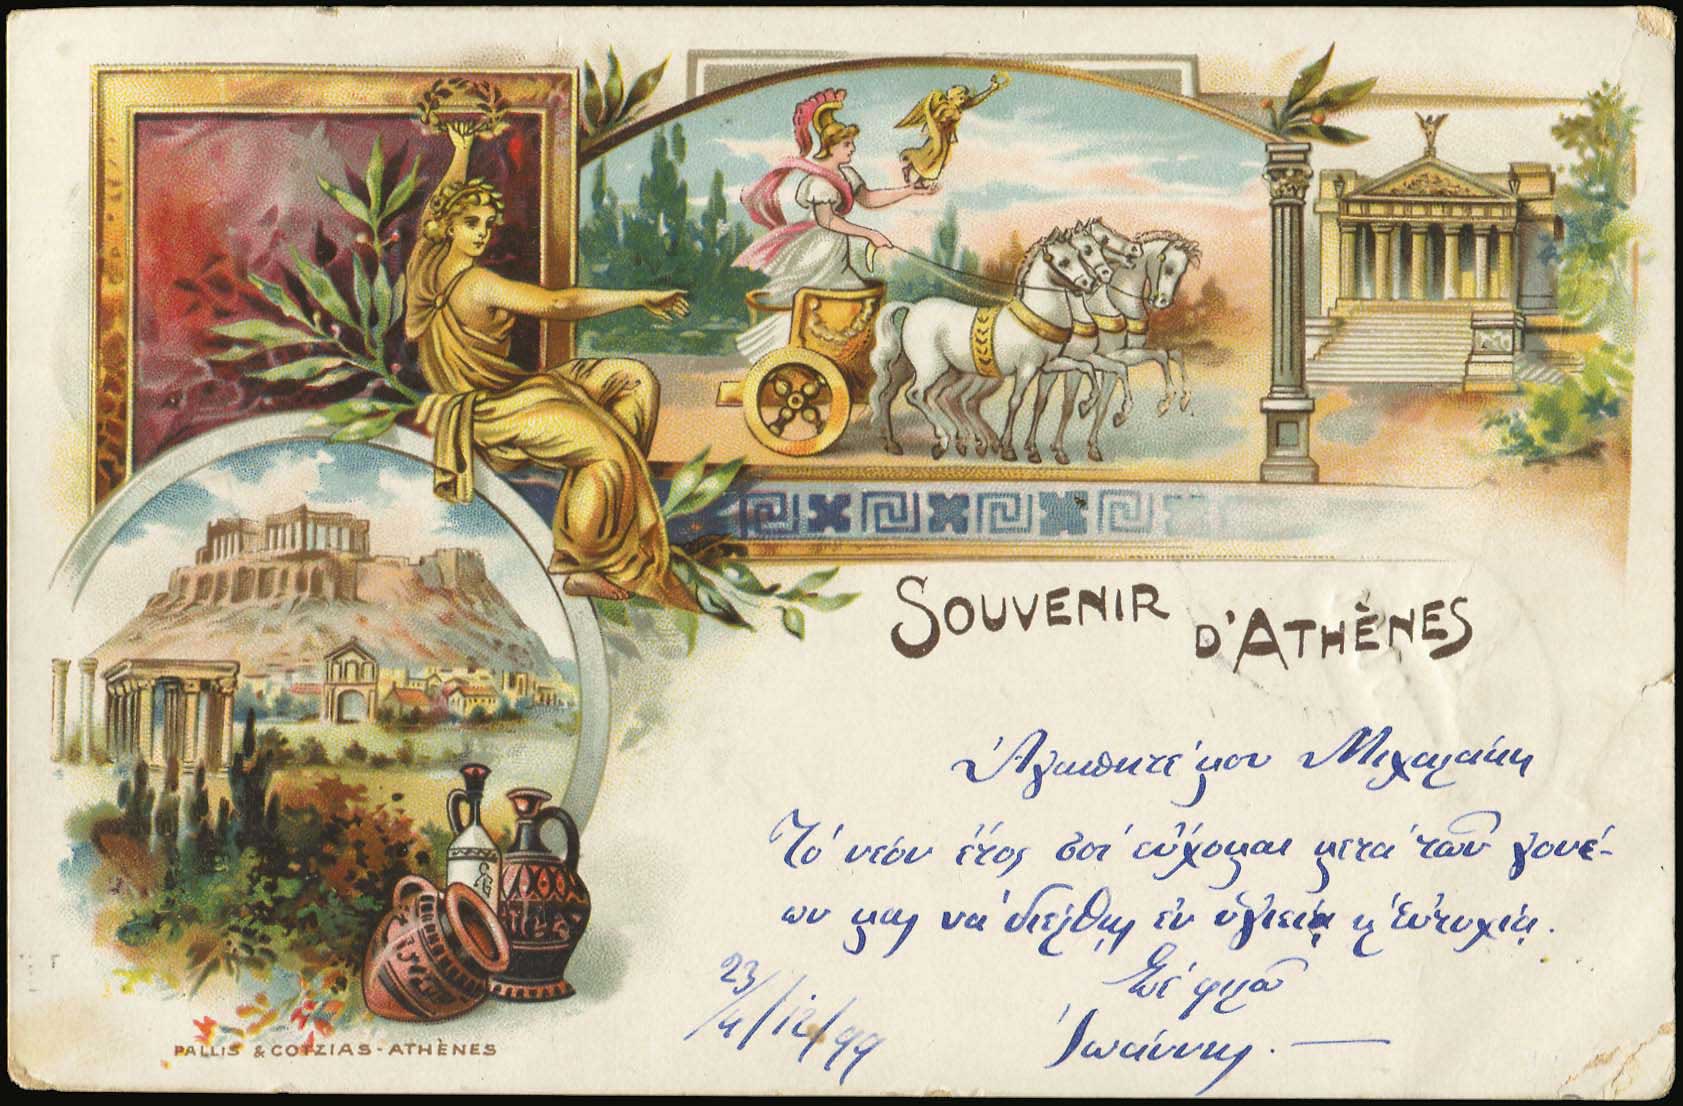 SOUVENIR D'ATHÈNES
Ἀγαπητέ μου Μιχαλάκη
Τό νέον ἔτος σοί εὔχομαι μετά τῶν γονέ-
ων μας νά διέλθῃς ἐν ὑγιείᾳ κ εὐτυχίᾳ.
Σέ φιλῶ
Ἰωάννης.
23/4/12/99
PALLIS & COTZIAS - ATHÈNES